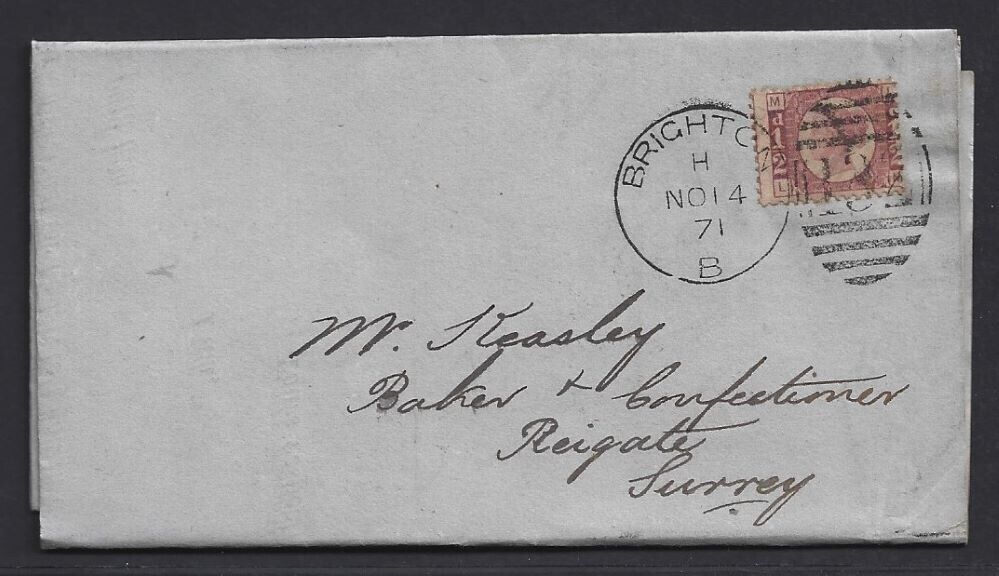 BRIGHTON
H
NO 14
71
B
M
d1/2
L
Mr. Keasley
Baker & Confectioner
Reigate
Surrey